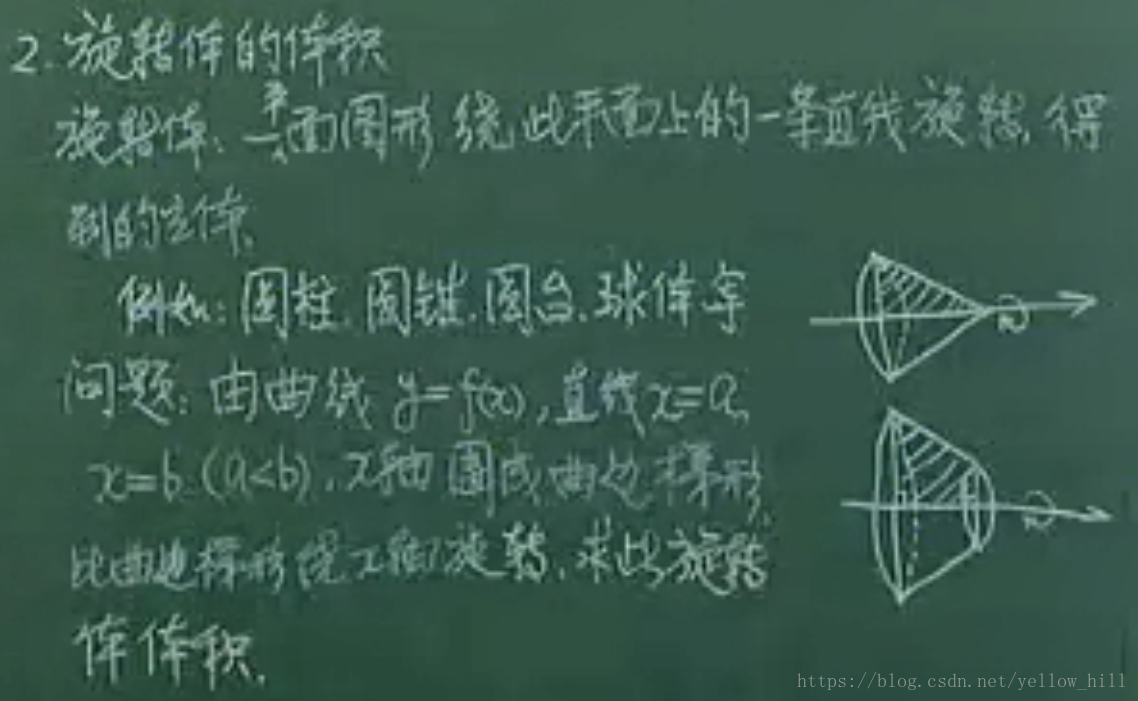 2. 旋转体的体积
旋转体: 平面图形绕此平面上的一条直线旋转, 得
到的立体.
例如: 圆柱. 圆锥. 圆台. 球体等
问题: 由曲线 y=f(x), 直线 x=a,
x=b (a<b), x轴围成曲边梯形,
此曲边梯形绕x轴旋转, 求此旋转
体体积.
https://blog.csdn.net/yellow_hill